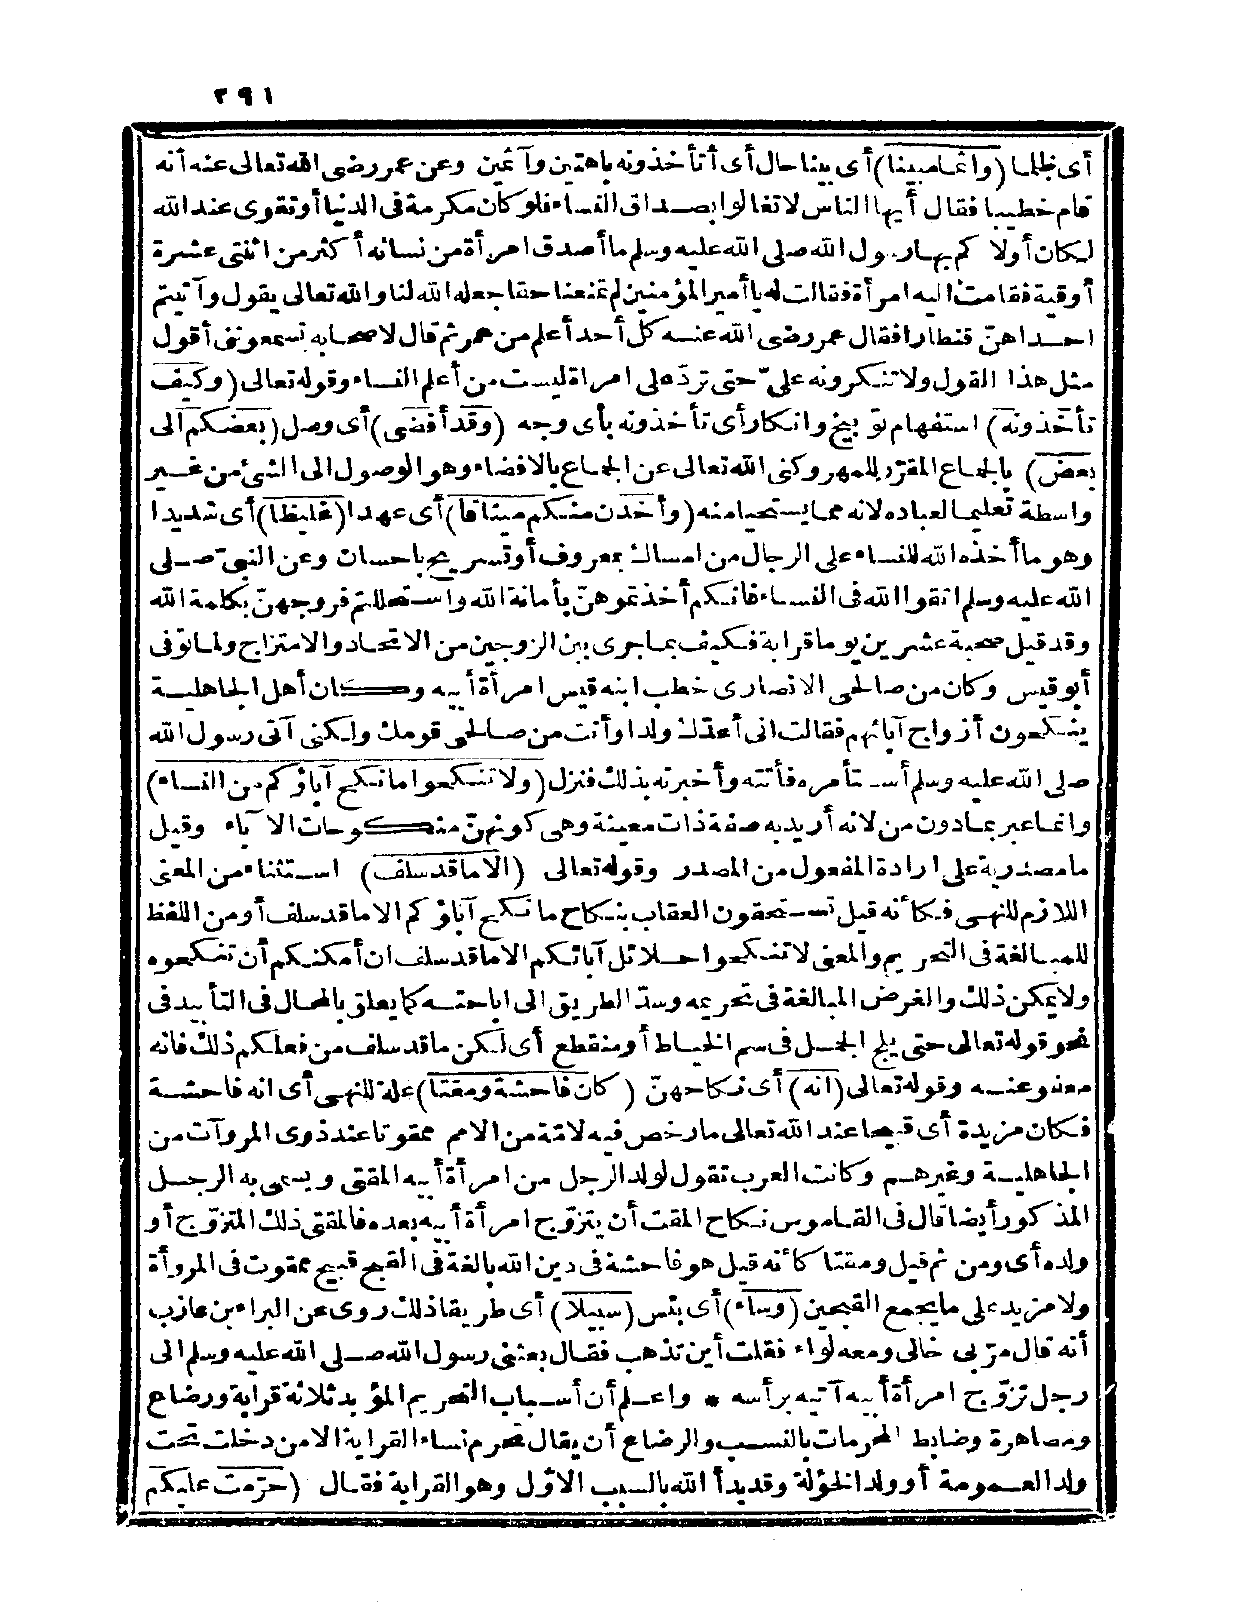 ٢٩١
أى ظلما (واثما مبينا) أى بينا حال أى أتأخذونه باهتين وآثمين وعن عمر رضى الله تعالى عنه أنه
قام خطيبا فقال أيها الناس لا تغالوا بصداق النساء فلو كان مكرمة فى الدنيا أو تقوى عند الله
لكان أولاكم بها رسول الله صلى الله عليه وسلم ما أصدق امرأة من نسائه أكثر من اثنتى عشرة
أوقية فقامت اليه امرأة فقالت له يا أمير المؤمنين لم تمنعنا حقا جعله الله لنا والله تعالى يقول وآتيتم
احداهنّ قنطارا فقال عمر رضى الله عنه كل أحد أعلم من عمر ثم قال لاصحابه تسمعوننى أقول
مثل هذا القول ولا تنكرونه علىّ حتى تردّ على امرأة ليست من أعلم النساء وقوله تعالى (وكيف
تأخذونه) استفهام توبيخ وانكار أى تأخذونه بأى وجه (وقد أفضى) أى وصل (بعضكم الى
بعض) بالجماع المقرّر للمهر وكنى الله تعالى عن الجماع بالافضاء وهو الوصول الى الشئ من غير
واسطة تعليما لعباده لانه مما يستحيا منه (وأخذن منكم ميثاقا) أى عهدا (غليظا) أى شديدا
وهو ما أخذه الله للنساء على الرجال من امساك بمعروف أو تسريح باحسان وعن النبىّ صلى
الله عليه وسلم اتقوا الله فى النساء فانكم أخذتموهنّ بأمانة الله واستحللتم فروجهنّ بكلمة الله
وقد قيل صحبة عشرين يوما قرابة فكيف بما جرى بين الزوجين من الاتحاد والامتزاج ولما توفى
أبو قيس وكان من صالحى الانصارى خطب ابنه قيس امرأة أبيه وكان أهل الجاهلية
ينكحون أزواج آبائهم فقالت انى أعدّك ولدا وأنت من صالحى قومك ولكنى آتى رسول الله
صلى الله عليه وسلم أستأمره فأتته وأخبرته بذلك فنزل (ولا تنكحوا ما نكح آباؤكم من النساء)
وانما عبر بما دون من لانه أريد به صفة ذات معينة وهى كونهنّ منكوحات الآباء وقيل
ما مصدرية على ارادة المفعول من المصدر وقوله تعالى (الا ما قد سلف) استثناء من المعنى
اللازم للنهى فكأنه قيل تستحقون العقاب بنكاح ما نكح آباؤكم الا ما قد سلف أو من اللفظ
للمبالغة فى التحريم والمعنى لا تنكحوا حلائل آبائكم الا ما قد سلف ان أمكنكم أن تنكحوه
ولا يمكن ذلك والغرض المبالغة فى تحريمه وسدّ الطريق الى اباحته كما يعلق بالمحال فى التأبيد فى
نحو قوله تعالى حتى يلج الجمل فى سم الخياط أو منقطع أى لكن ما قد سلف من فعلكم ذلك فانه
معفو عنه وقوله تعالى (انه) أى نكاحهنّ (كان فاحشة ومقتا) علة للنهى أى انه فاحشة
فكان مزيدة أى قبيحا عند الله تعالى ما رخص فيه لامّة من الامم ممقوتا عند ذوى المروآت من
الجاهلية وغيرهم وكانت العرب تقول لولد الرجل من امرأة أبيه المقتى ويسمى به الرجل
المذكور أيضا قال فى القاموس نكاح المقت أن يتزوّج امرأة أبيه بعده فالمقتى ذلك المتزوّج أو
ولده أى ومن ثم قيل ومقتا كأنه قيل هو فاحشة فى دين الله بالغة فى القبح قبيح ممقوت فى المروأة
ولا مزيد على ما يجمع القبحين (وساء) أى بئس (سبيلا) أى طريقا ذلك روى عن البراء بن عازب
أنه قال مرّ بى خالى ومعه لواء فقلت أين تذهب فقال بعثنى رسول الله صلى الله عليه وسلم الى
رجل تزوّج امرأة أبيه آتيه برأسه * واعلم أن أسباب التحريم المؤبد ثلاثة قرابة ورضاع
ومصاهرة وضابط المحرمات بالنسب والرضاع أن يقال تحرم نساء القرابة الا من دخلت تحت
ولد العمومة أو ولد الخؤلة وقد بدأ الله بالسبب الاوّل وهو القرابة فقال (حرّمت عليكم